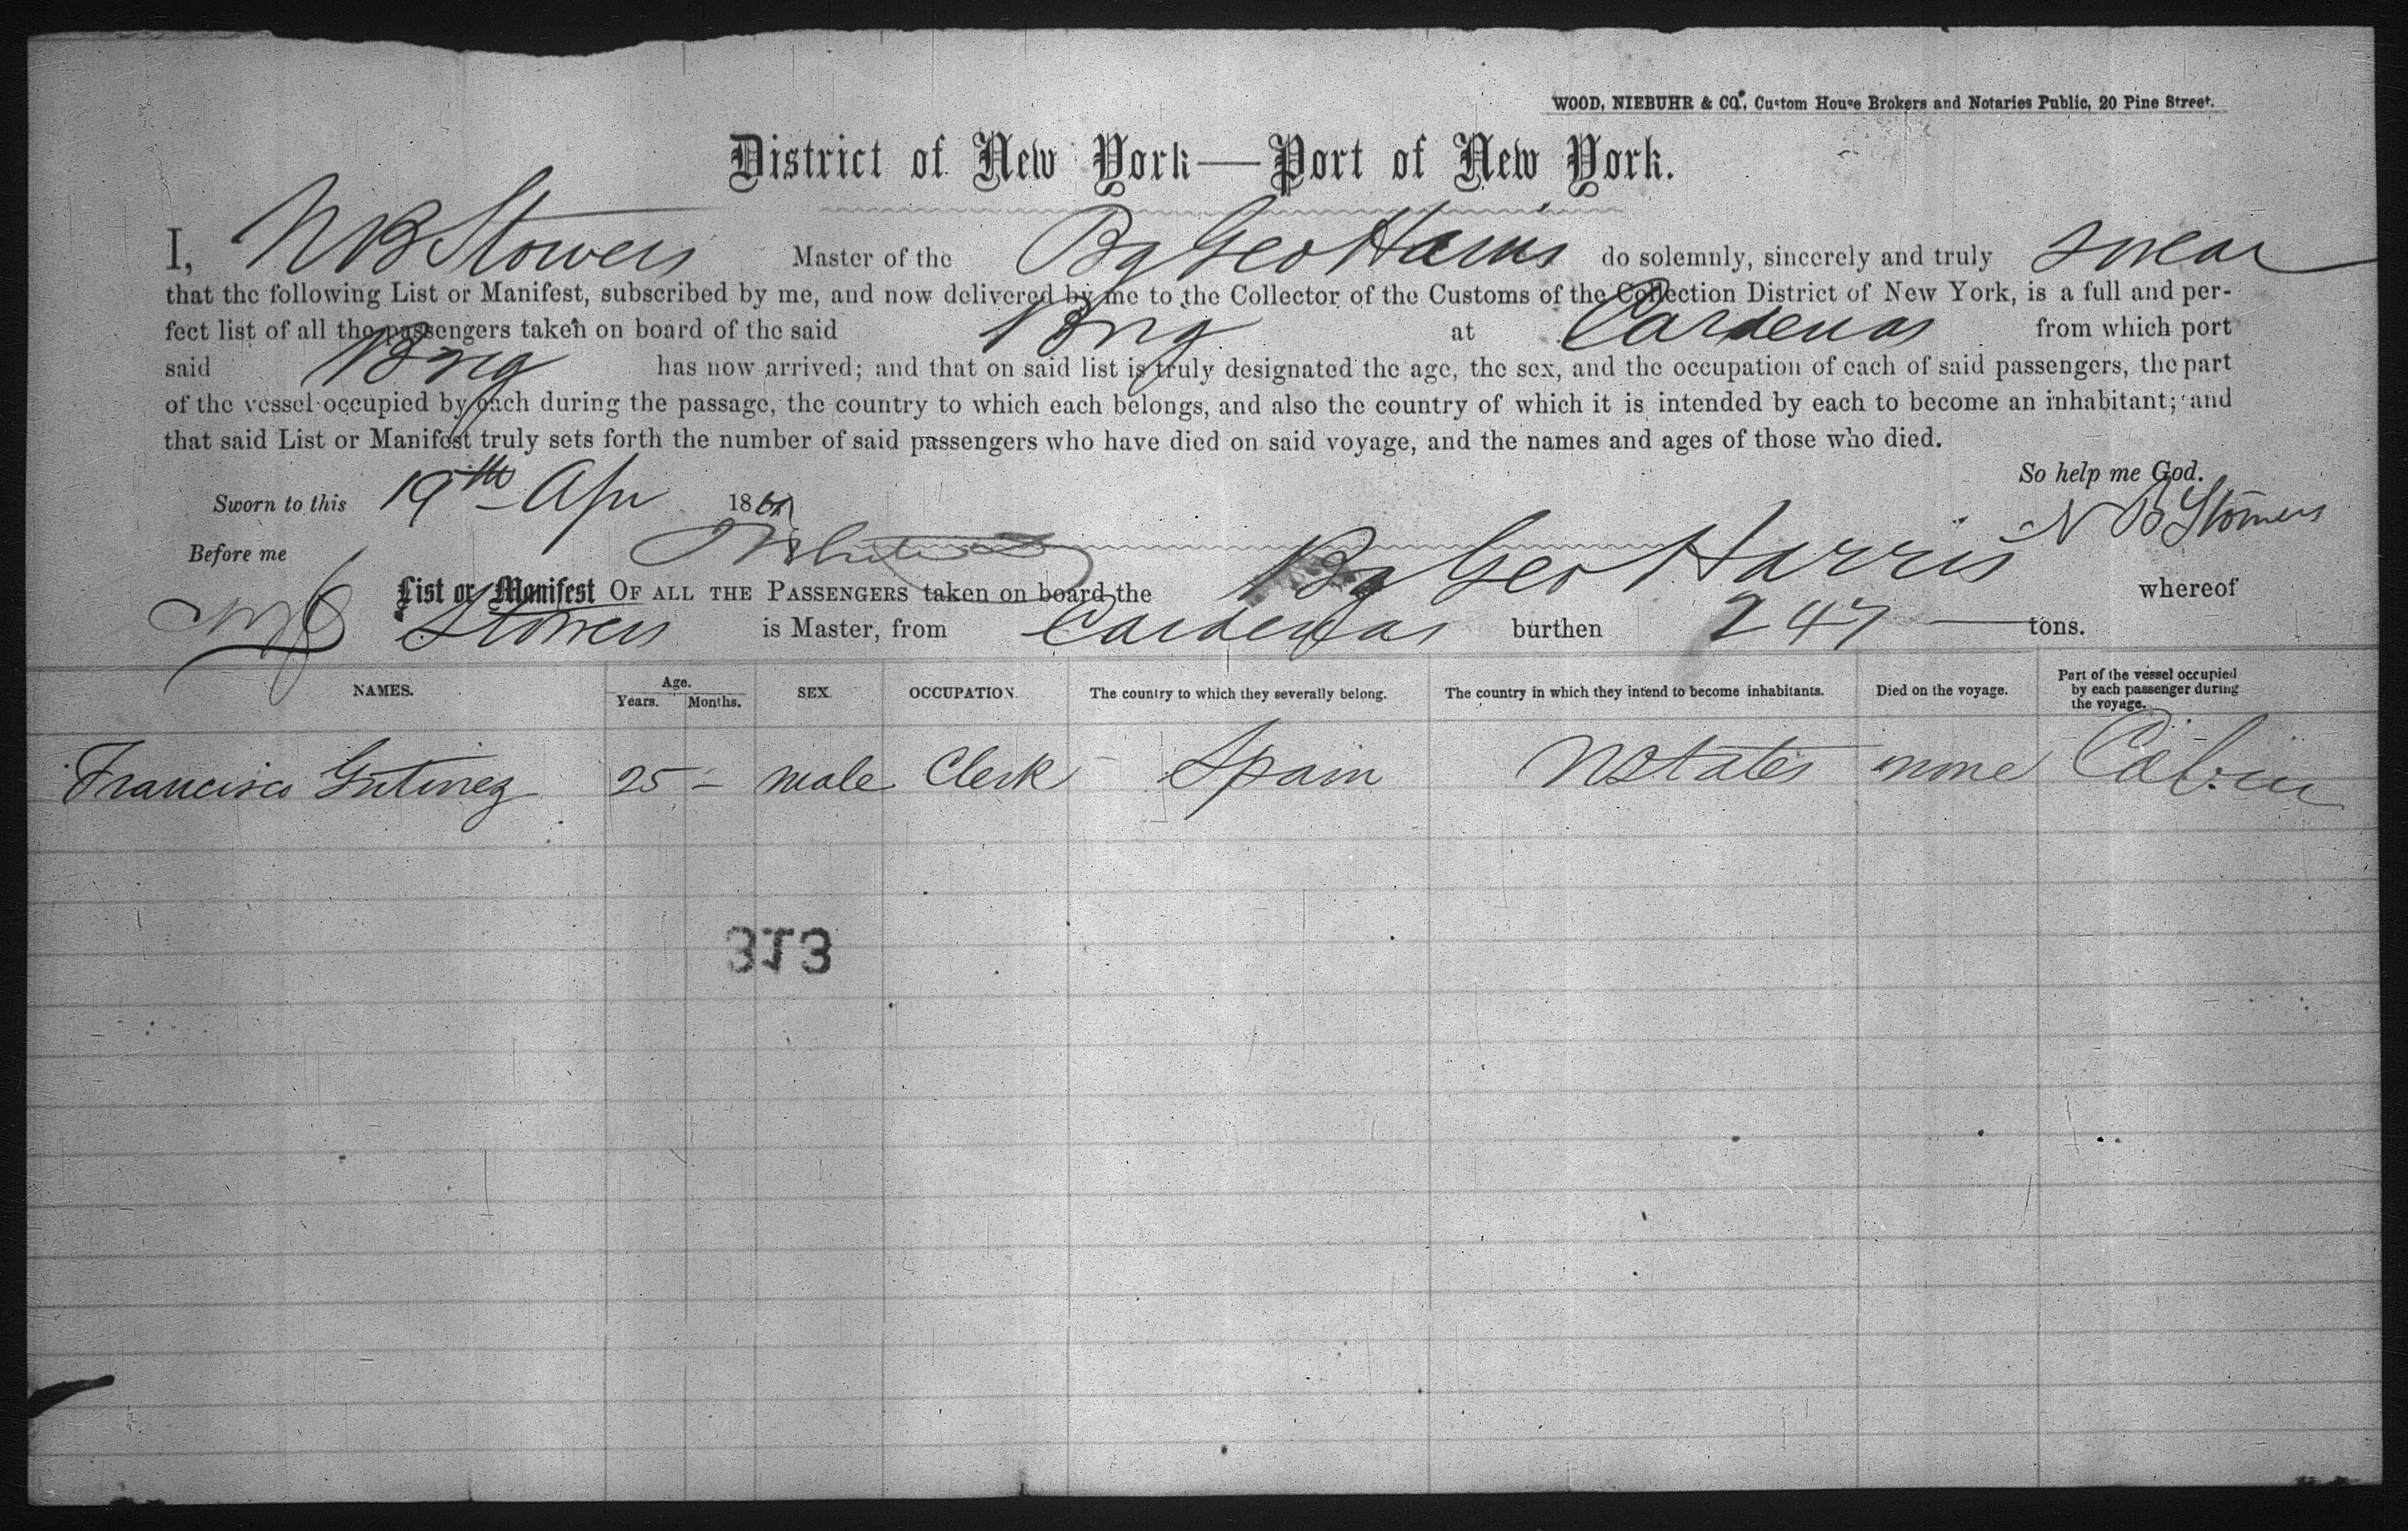 WOOD, NIEBUHR & CO., Custom House Brokers and Notaries Public, 20 Pine Street.
District of New York—Port of New York.
I, N B Stowers Master of the Bg Geo Harris do solemnly, sincerely and truly swear
that the following List or Manifest, subscribed by me, and now delivered by me to the Collector of the Customs of the Collection District of New York, is a full and per-
fect list of all the passengers taken on board of the said Brig at Cardenas from which port
said Brig has now arrived; and that on said list is truly designated the age, the sex, and the occupation of each of said passengers, the part
of the vessel occupied by each during the passage, the country to which each belongs, and also the country of which it is intended by each to become an inhabitant; and
that said List or Manifest truly sets forth the number of said passengers who have died on said voyage, and the names and ages of those who died.
So help me God.
Sworn to this 19th Apr 186
N B Stowers
Before me
List or Manifest OF ALL THE PASSENGERS taken on board the Bg Geo Harris whereof
Stowers is Master, from Cardenas burthen 247 tons.
NAMES. Age. Years. Months. SEX. OCCUPATION. The country to which they severally belong. The country in which they intend to become inhabitants. Died on the voyage. Part of the vessel occupied by each passenger during the voyage.
Francisco Gutirrez 25 - male Clerk Spain UStates none Cabin
313